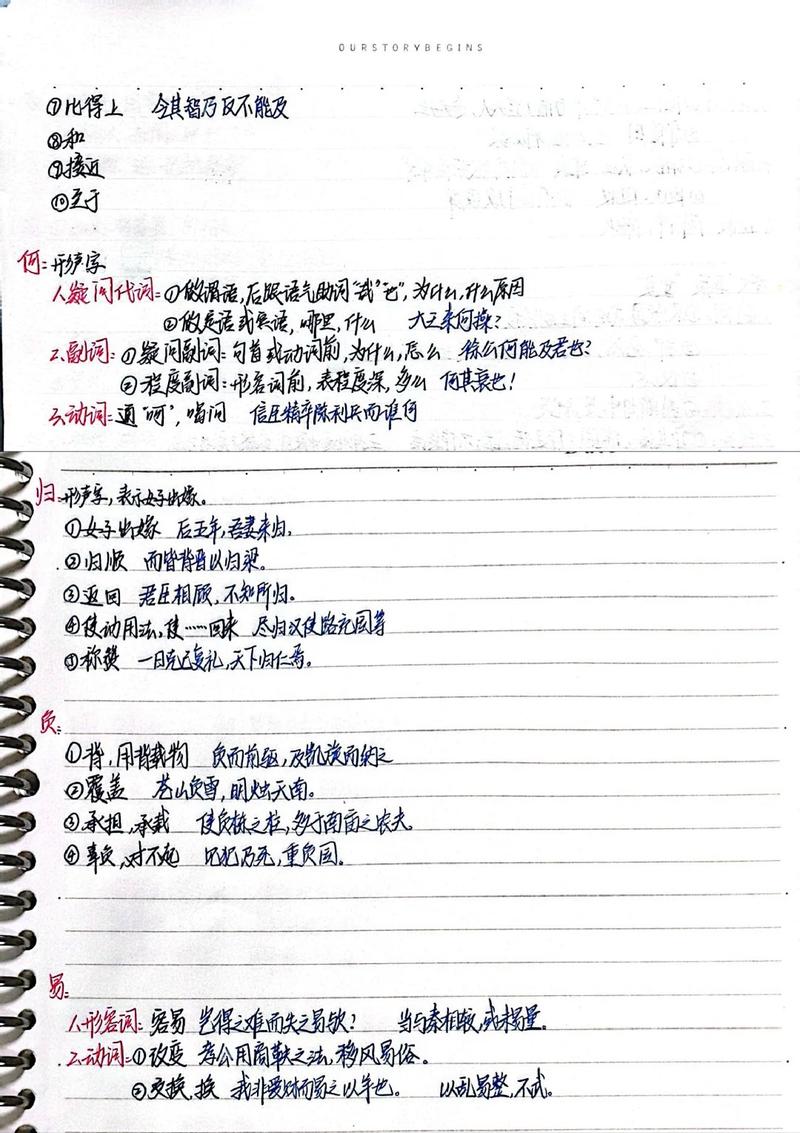 OURSTORYBEGINS
⑦比得上 今其智乃反不能及
⑧和
⑨接近
⑩至于
何:形声字
1、疑问代词:①做谓语,后跟语气助词“哉”“也”,为什么,什么原因
②做定语或宾语,哪里,什么 大王来何操?
2、副词:①疑问副词:句首或动词前,为什么,怎么 徐公何能及君也?
②程度副词:形容词前,表程度深,多么 何其衰也!
3、动词:通“呵”,喝问 信臣精卒陈利兵而谁何
归:形声字,表示女子出嫁。
①女子出嫁 后五年,吾妻来归。
②归顺 而皆背晋以归梁。
③返回 君臣相顾,不知所归。
④使动用法,使……回来 尽归汉使路充国等
⑤称赞 一日克己复礼,天下归仁焉。
负:
①背,用背载物 负而前驱,及凯旋而纳之
②覆盖 苍山负雪,明烛天南。
③承担,承载 使负栋之柱,多于南亩之农夫。
④辜负,对不起 见犯乃死,重负国。
易:
1、形容词:容易 岂得之难而失之易欤? 当与秦相较,或未易量。
2、动词:①改变 孝公用商鞅之法,移风易俗。
②交换,换 我非爱其财而易之以羊也。 以乱易整,不武。